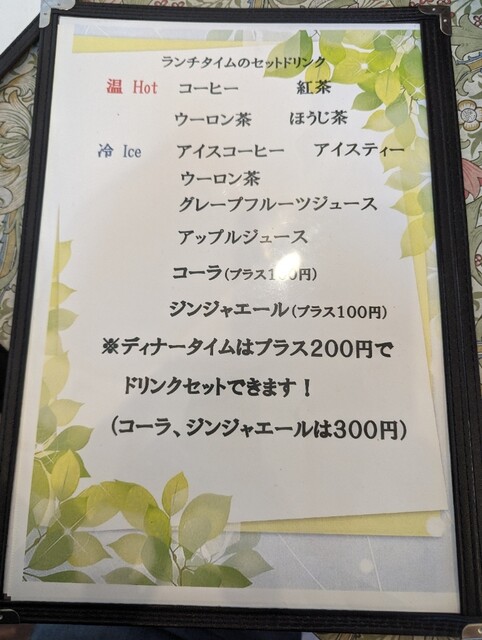 ランチタイムのセットドリンク
温 Hot コーヒー 紅茶
ウーロン茶 ほうじ茶
冷 Ice アイスコーヒー アイスティー
ウーロン茶
グレープフルーツジュース
アップルジュース
コーラ(プラス100円)
ジンジャエール(プラス100円)
※ディナータイムはプラス200円で
ドリンクセットできます！
(コーラ、ジンジャエールは300円)